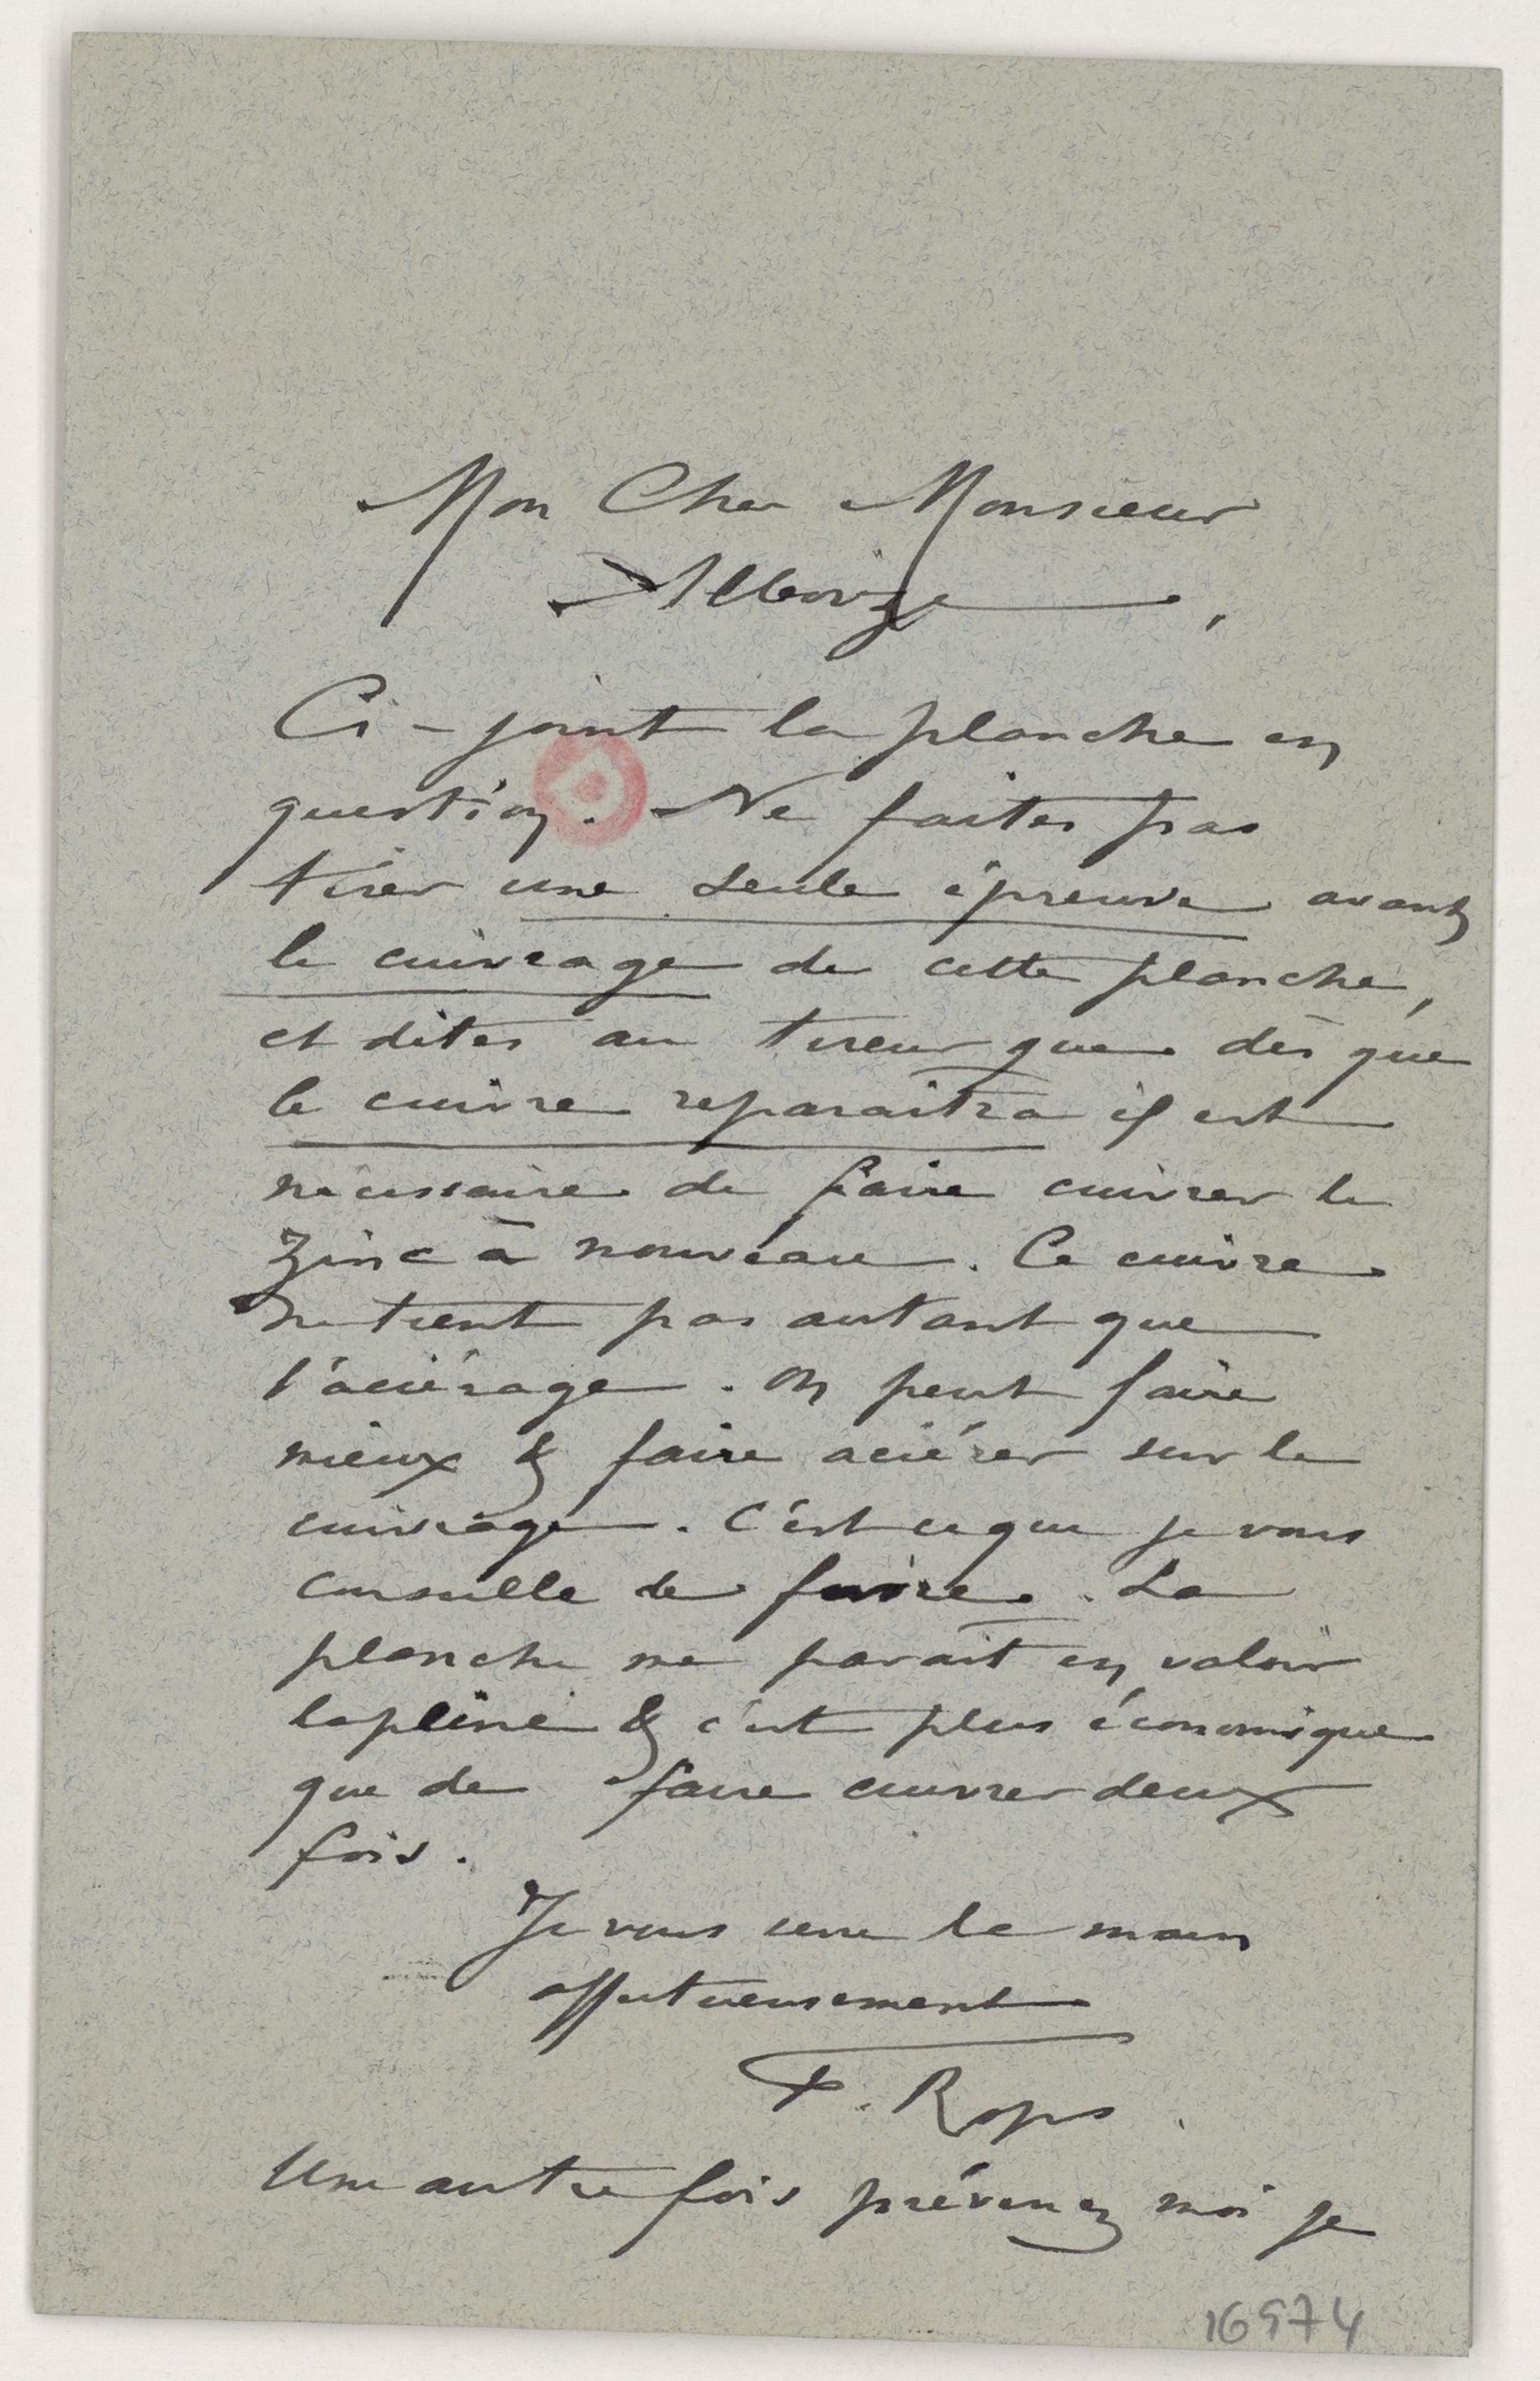 Mon Cher Monsieur
Alboize,
Ci-joint la planche en
question. Ne faites pas
tirer une seule épreuve avant
le cuivrage de cette planche,
et dites au tireur que dès que
le cuivre reparaitra il est
nécessaire de faire cuivrer le
Zinc à nouveau. Ce cuivre
ne tient pas autant que
l'aciérage. On peut faire
mieux & faire aciérer sur le
cuivrage. C'est ce que je vous
conseille de faire. La
planche me parait en valoir
la peine & c'est plus économique
que de faire cuivrer deux
fois.
Je vous serre la main
affectueusement
F. Rops.
Une autre fois prévenez moi je
16974